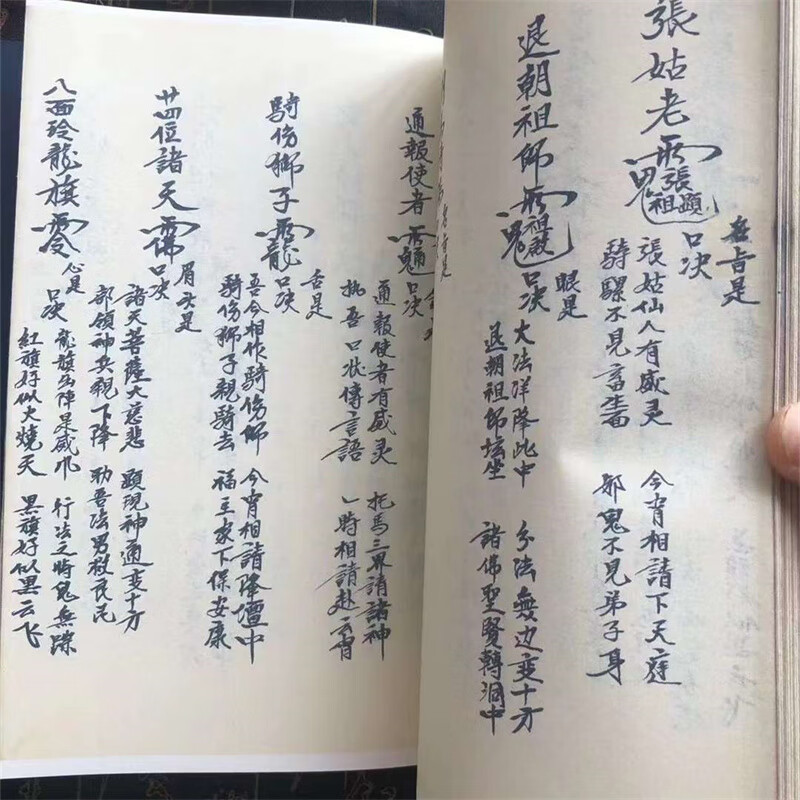 張姑老
張祖顕
是
口决
張姑仙人有威灵 今宵相請下天庭
騎騾不見畜生面 邪鬼不見弟子身
退朝祖師
祖殺
眼是
口决
大法洋降此中 分法無边变十方
退朝祖師坛坐 諸佛聖賢轉洞中
通報使者
口决
通報使者有威灵 托馬三界請諸神
扒吾口狀傳言語 一時相請赴云宵
騎傷獅子
舌是
口决
吾今相作騎傷師 今宵相請降壇中
騎傷獅子親騎去 福主家下保安康
廿四位諸天
眉毛是
口决
諸天菩薩大慈悲 顕現神通变十方
部領神兵親下降 助吾法男救良民
八面玲龍旗
心是
口决
龍旗出陣是威爪 行法之時鬼無踪
紅旗好似火燒天 黑旗好似黑云飞